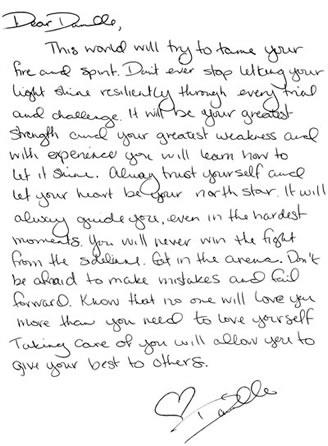 Dear Danielle,
This world will try to tame your
fire and spirit. Don't ever stop letting your
light shine resiliently through every trial
and challenge. It will be your greatest
strength and your greatest weakness and
with experience you will learn how to
let it shine. Always trust yourself and
let your heart be your north star. It will
always guide you, even in the hardest
moments. You will never win the fight
from the sidelines. Get in the arena. Don't
be afraid to make mistakes and fail
forward. Know that no one will love you
more than you need to love yourself
Taking care of you will allow you to
give your best to others.
♡ Danielle